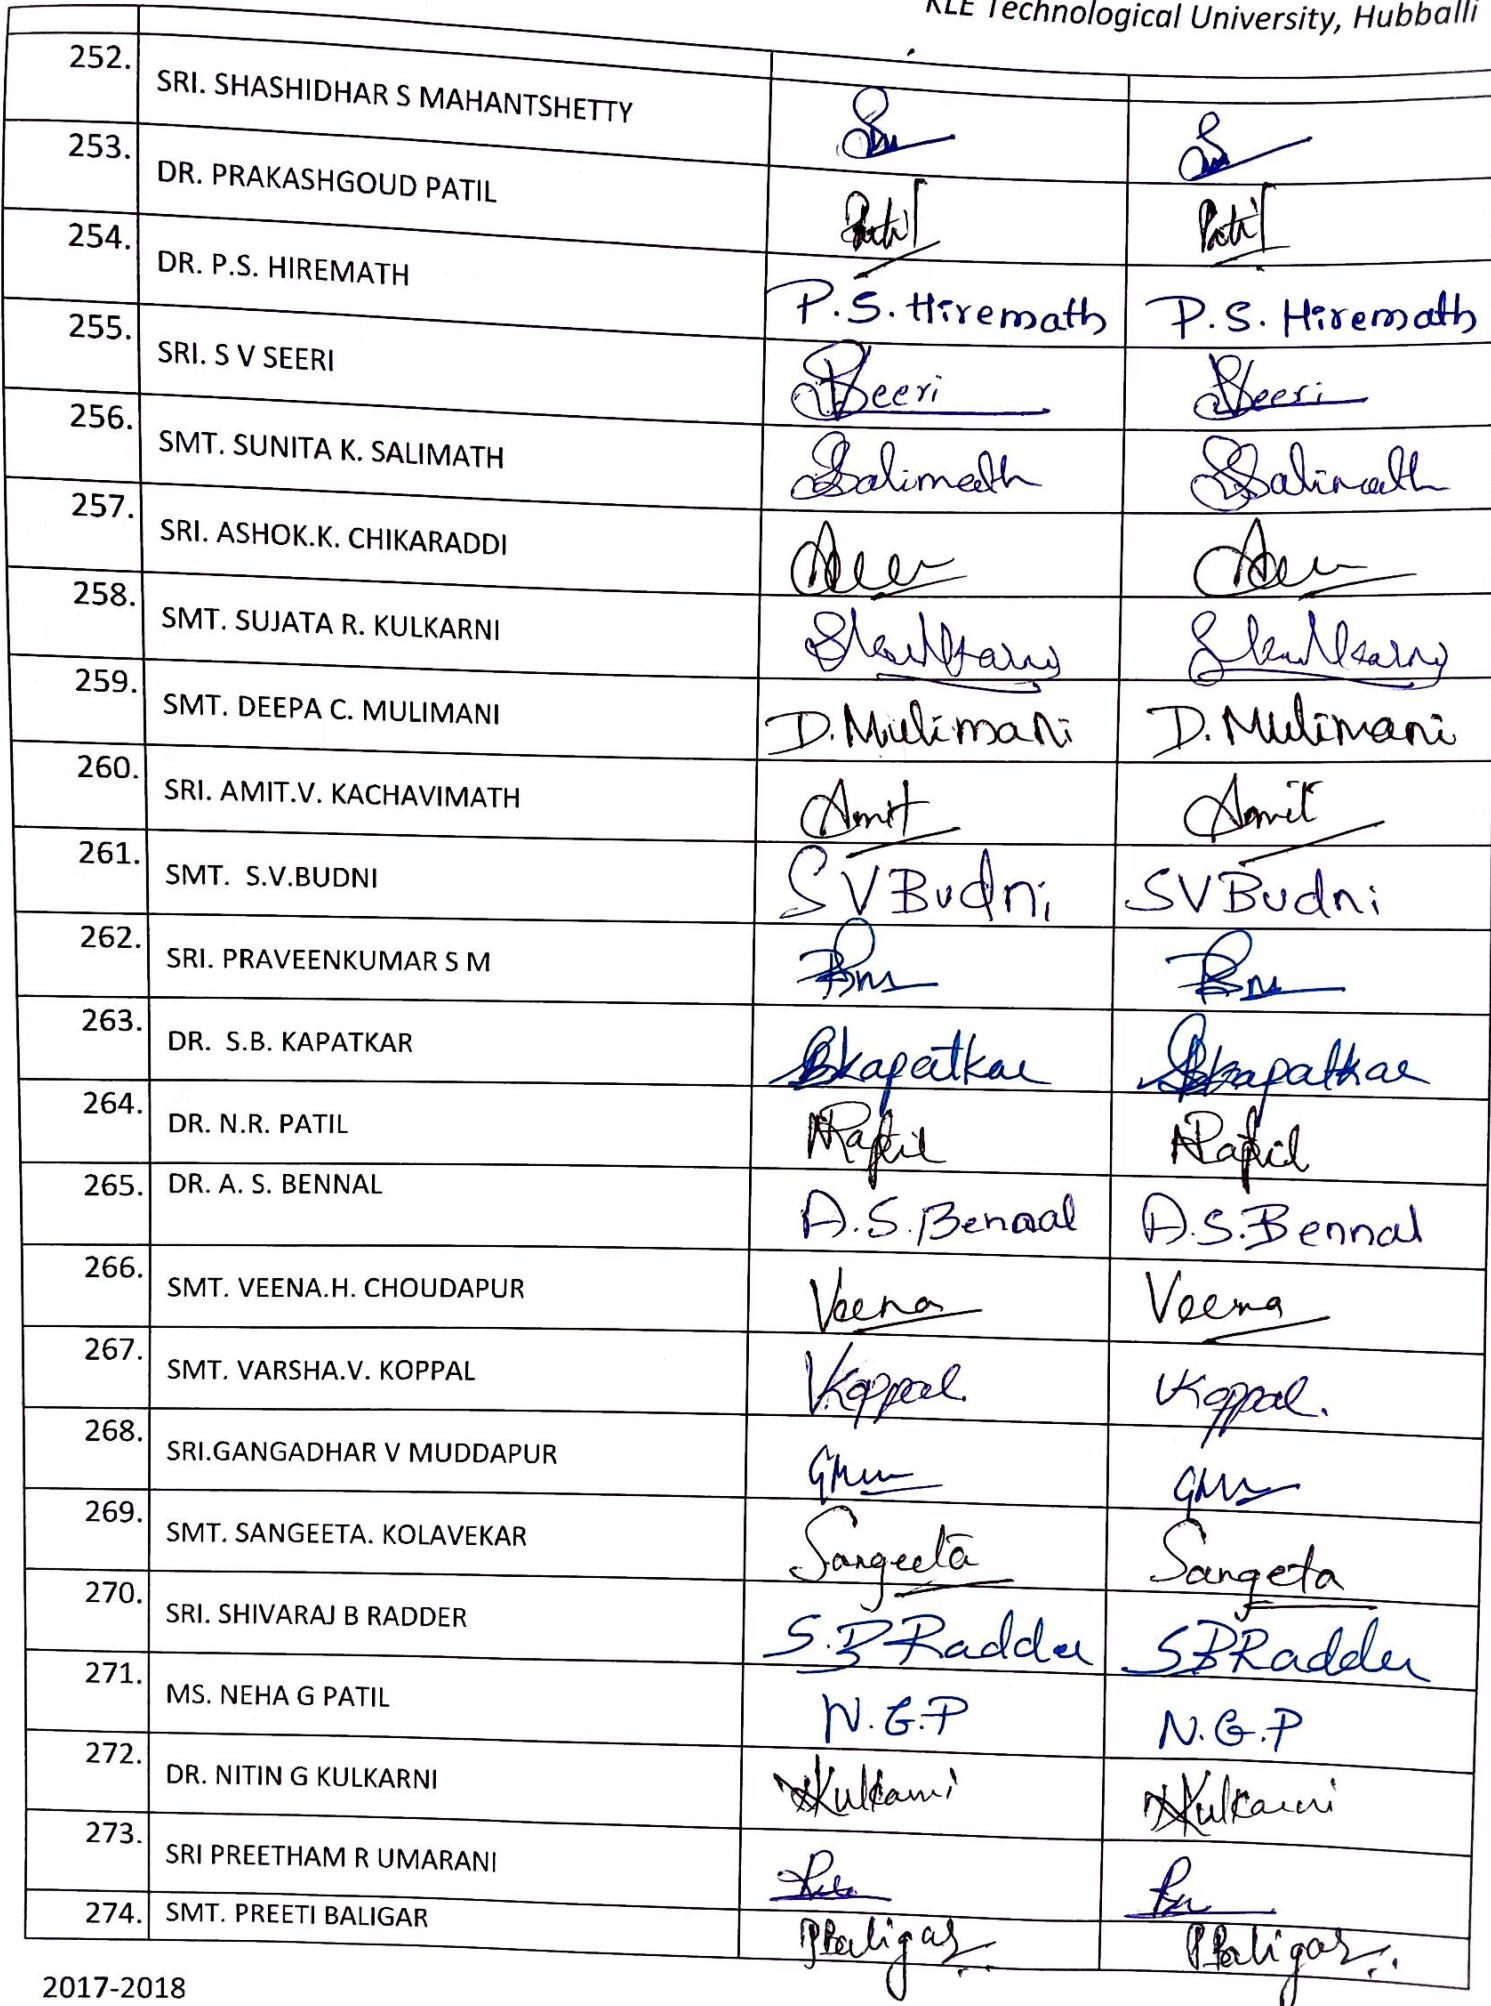 KLE Technological University, Hubballi
252. SRI. SHASHIDHAR S MAHANTSHETTY
253. DR. PRAKASHGOUD PATIL Patil Patil
254. DR. P.S. HIREMATH P.S. Hiremath P.S. Hiremath
255. SRI. S V SEERI SVSeeri SVSeeri
256. SMT. SUNITA K. SALIMATH Salimath Salimath
257. SRI. ASHOK.K. CHIKARADDI
258. SMT. SUJATA R. KULKARNI SKulkarni SKulkarni
259. SMT. DEEPA C. MULIMANI D. Mulimani D. Mulimani
260. SRI. AMIT.V. KACHAVIMATH Amit Amit
261. SMT. S.V.BUDNI S V Budni SV Budni
262. SRI. PRAVEENKUMAR S M
263. DR. S.B. KAPATKAR SBKapatkar SBKapatkar
264. DR. N.R. PATIL NRPatil NRPatil
265. DR. A. S. BENNAL A.S. Bennal A.S. Bennal
266. SMT. VEENA.H. CHOUDAPUR Veena Veena
267. SMT. VARSHA.V. KOPPAL VKoppal. VKoppal.
268. SRI.GANGADHAR V MUDDAPUR
269. SMT. SANGEETA. KOLAVEKAR Sangeeta Sangeta
270. SRI. SHIVARAJ B RADDER S.B Radder SBRadder
271. MS. NEHA G PATIL N.G.P N.G.P
272. DR. NITIN G KULKARNI Kulkarni Kulkarni
273. SRI PREETHAM R UMARANI
274. SMT. PREETI BALIGAR PBaligar PBaligar
2017-2018